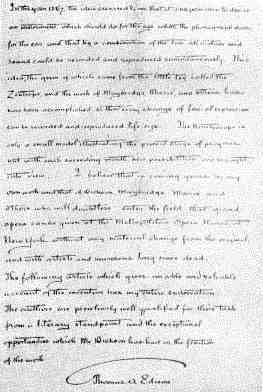 In the year 1887, the idea occurred to me that it was possible to devise
an instrument which should do for the eye what the phonograph does
for the ear, and that by a combination of the two all motion and
sound could be recorded and reproduced simultaneously. This
idea, the germ of which came from the little toy called the
Zoetrope, and the work of Muybridge, Marié, and others has
now been accomplished, so that every change of facial expression
can be recorded and reproduced life size. The Kinetoscope is
only a small model illustrating the present stage of progress
but with each succeeding month new possibilities are brought
into view. I believe that in coming years by my
own work and that of Dickson, Muybridge Marié and
others who will doubtless enter the field that grand
opera can be given at the Metropolitan Opera House at
New York without any material change from the original,
and with artists and musicians long since dead.
The following article which gives an able and reliable
account of the invention has my entire endorsation.
The authors are peculiarly well qualified for their task
from a literary standpoint and the exceptional
opportunities which Mr Dickson has had in the fruition
of the work.
Thomas A Edison